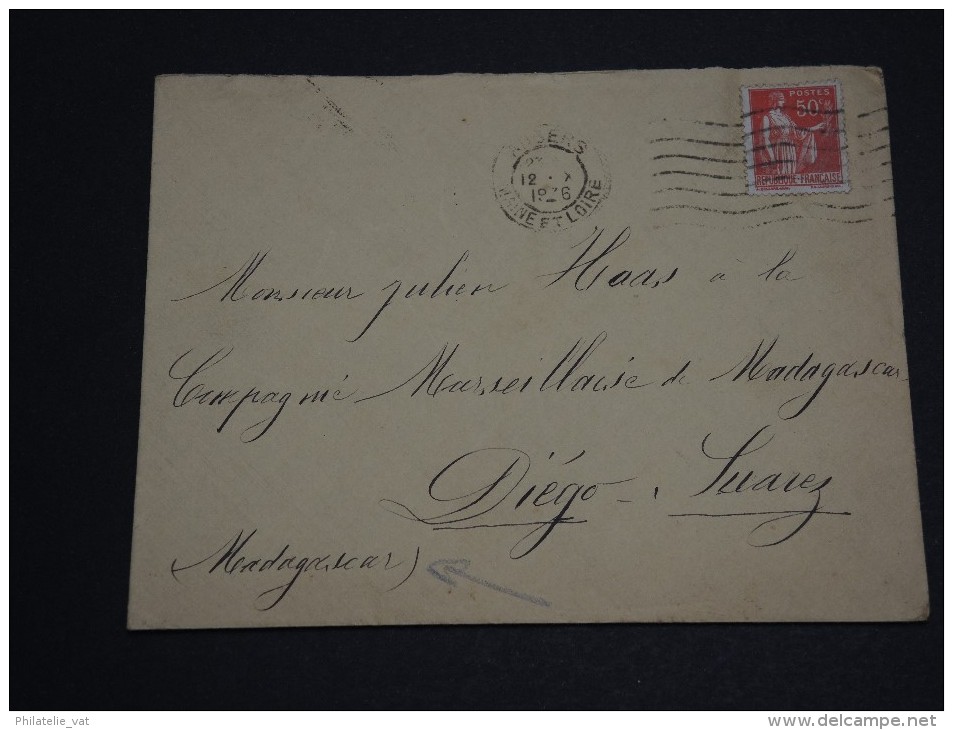 POSTES
50c
REPUBLIQUE FRANÇAISE
ANGERS
12 · X
1936
MAINE ET LOIRE
Monsieur Julien Haas à la
Compagnie Marseillaise de Madagascar
Diégo-Suarez
(Madagascar)
Philatelie_vat
www.delcampe.net